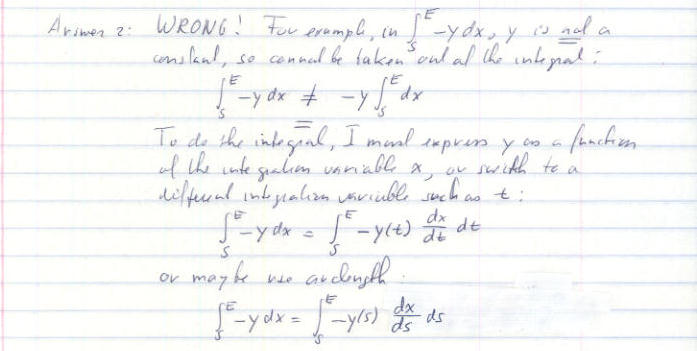 Answer 2: WRONG! For example, in ∫_S^E -y dx, y is not a
constant, so cannot be taken out of the integral:
∫_S^E -y dx ≠ -y ∫_S^E dx
To do the integral, I must express y as a function
of the integration variable x, or switch to a
different integration variable such as t:
∫_S^E -y dx = ∫_S^E -y(t) dx/dt dt
or maybe use arclength:
∫_S^E -y dx = ∫_S^E -y(s) dx/ds ds